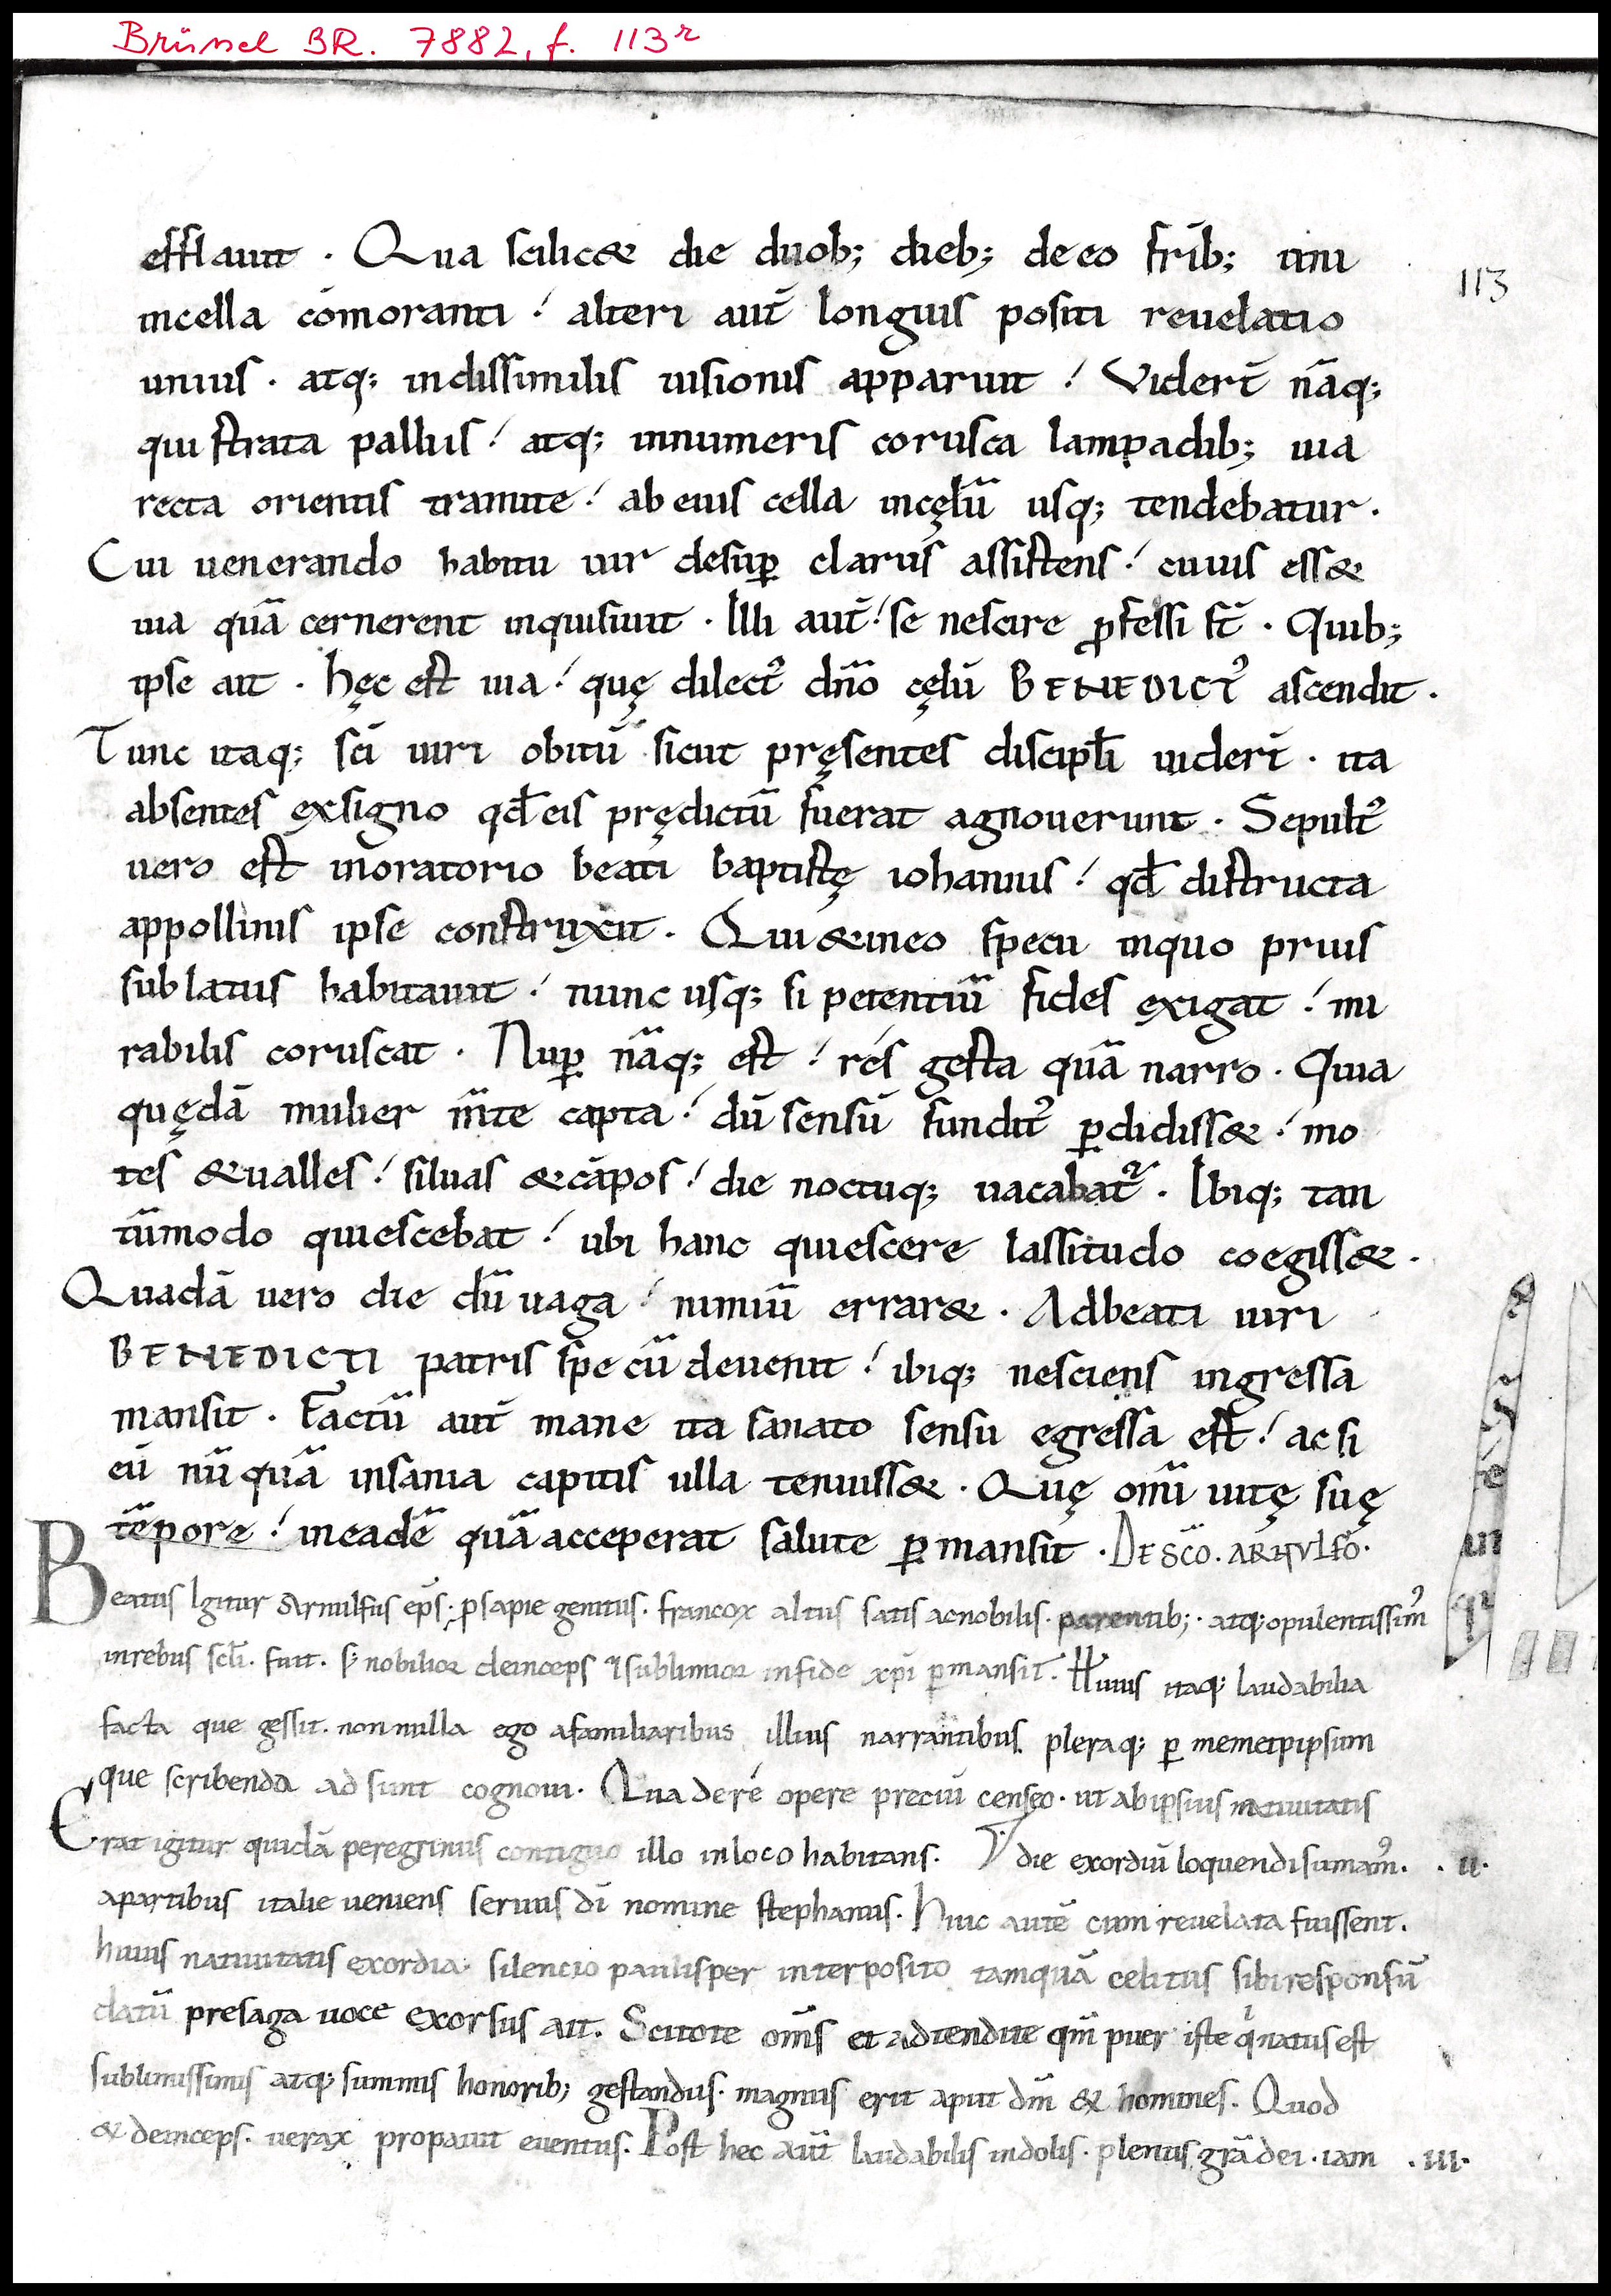 Brüssel BR. 7882, f. 113r
efflauit . Qua scilic& die duob; dieb; de eo frīb; uni
113
incella cōmoranti / alteri aut̄ longius positi reuelatio
unius . atq; indissimilis uisionis apparuit / Vider̄t nāq;
qui strata palliis / atq; innumeris corusca lampadib; uia
recta orientis tramite / ab eius cella incęlū usq; tendebatur .
Cui uenerando habitu uir desuꝑ clarus assistens / cuius ess&
uia quā cernerent inquisiuit . Illi aut̄ / se nescire ꝓfessi st̄ . Quib;
ipse ait . hęc est uia / quę dilectꝰ dn̄o cęlū BENEDICTꝰ ascendit .
Tunc itaq; sc̄i uiri obitū sicut pręsentes discipl̄i uider̄t . ita
absentes exsigno qđ eis prędictū fuerat agnouerunt . Sepultꝰ
uero est inoratorio beati baptistę iohannis / qđ distructa
appollinis ipse construxit . Qui &ineo specu inquo prius
sublatus habitauit / nunc usq; si petentiū fides exigat / mi
rabilis coruscat . Nuꝑ nāq; est / rés gesta quā narro . Quia
quędā mulier m̄te capta / dū sensū funditꝰ ꝑdidiss& / mo
tes &ualles / siluas &cāpos / die noctuq; uacabat᷑ . Ibiq; tan
tūmodo quiescebat / ubi hanc quiescere lassitudo coegiss& .
Quadā uero die dū uaga / nimiū errar& . Adbeati uiri
BENEDICTI patris specū deuenit / ibiq; nesciens ingressa
mansit . Factū aut̄ mane ita sanato sensu egressa est / ac si
eū nūquā insania capitis ulla tenuiss& . Quę om̄i uitę suę
tēpore / ineadē quā acceperat salute ꝑmansit . DE SC̄O . ARNVLFO .
Beatus Igitur Arnulfus ep̄s . ꝓsapie genitus . francoꝝ altus satis acnobilis . parentib; . atq; opulentissimꝰ
inrebus scl̄i . fuit . s; nobilior deinceps ⁊ sublimior infide xp̄i ꝑmansit . Huius itaq; laudabilia
facta que gessit . non nulla ego afamiliaribus illius narrantibus pleraq; ꝑ memetpipsum
que scribenda ad sunt cognoui . Qua deré opere preciū censeo . ut abipsius natiuitatis
Erat igitur quidā peregrinus contiguo illo inloco habitans . die exordiū loquendi sumamꝰ . . ii .
apartibus italie ueniens seruus dī nomine stephanus . Huic autē cum reuelata fuissent .
huius natiuitatis exordia . silencio paulisper interposito tamquā celitus sibi responsū
datū presaga uoce exorsus ait . Scitote om̄s et adtendite qm̄ puer iste qͥ natus est
sublimissimis atq; summis honorib; gestandus . magnus erit aput dm̄ & homines . Quod
& deinceps . uerax propauit euentus . Post hec aut̄ laudabilis indolis . plenus grā dei . iam . iii .